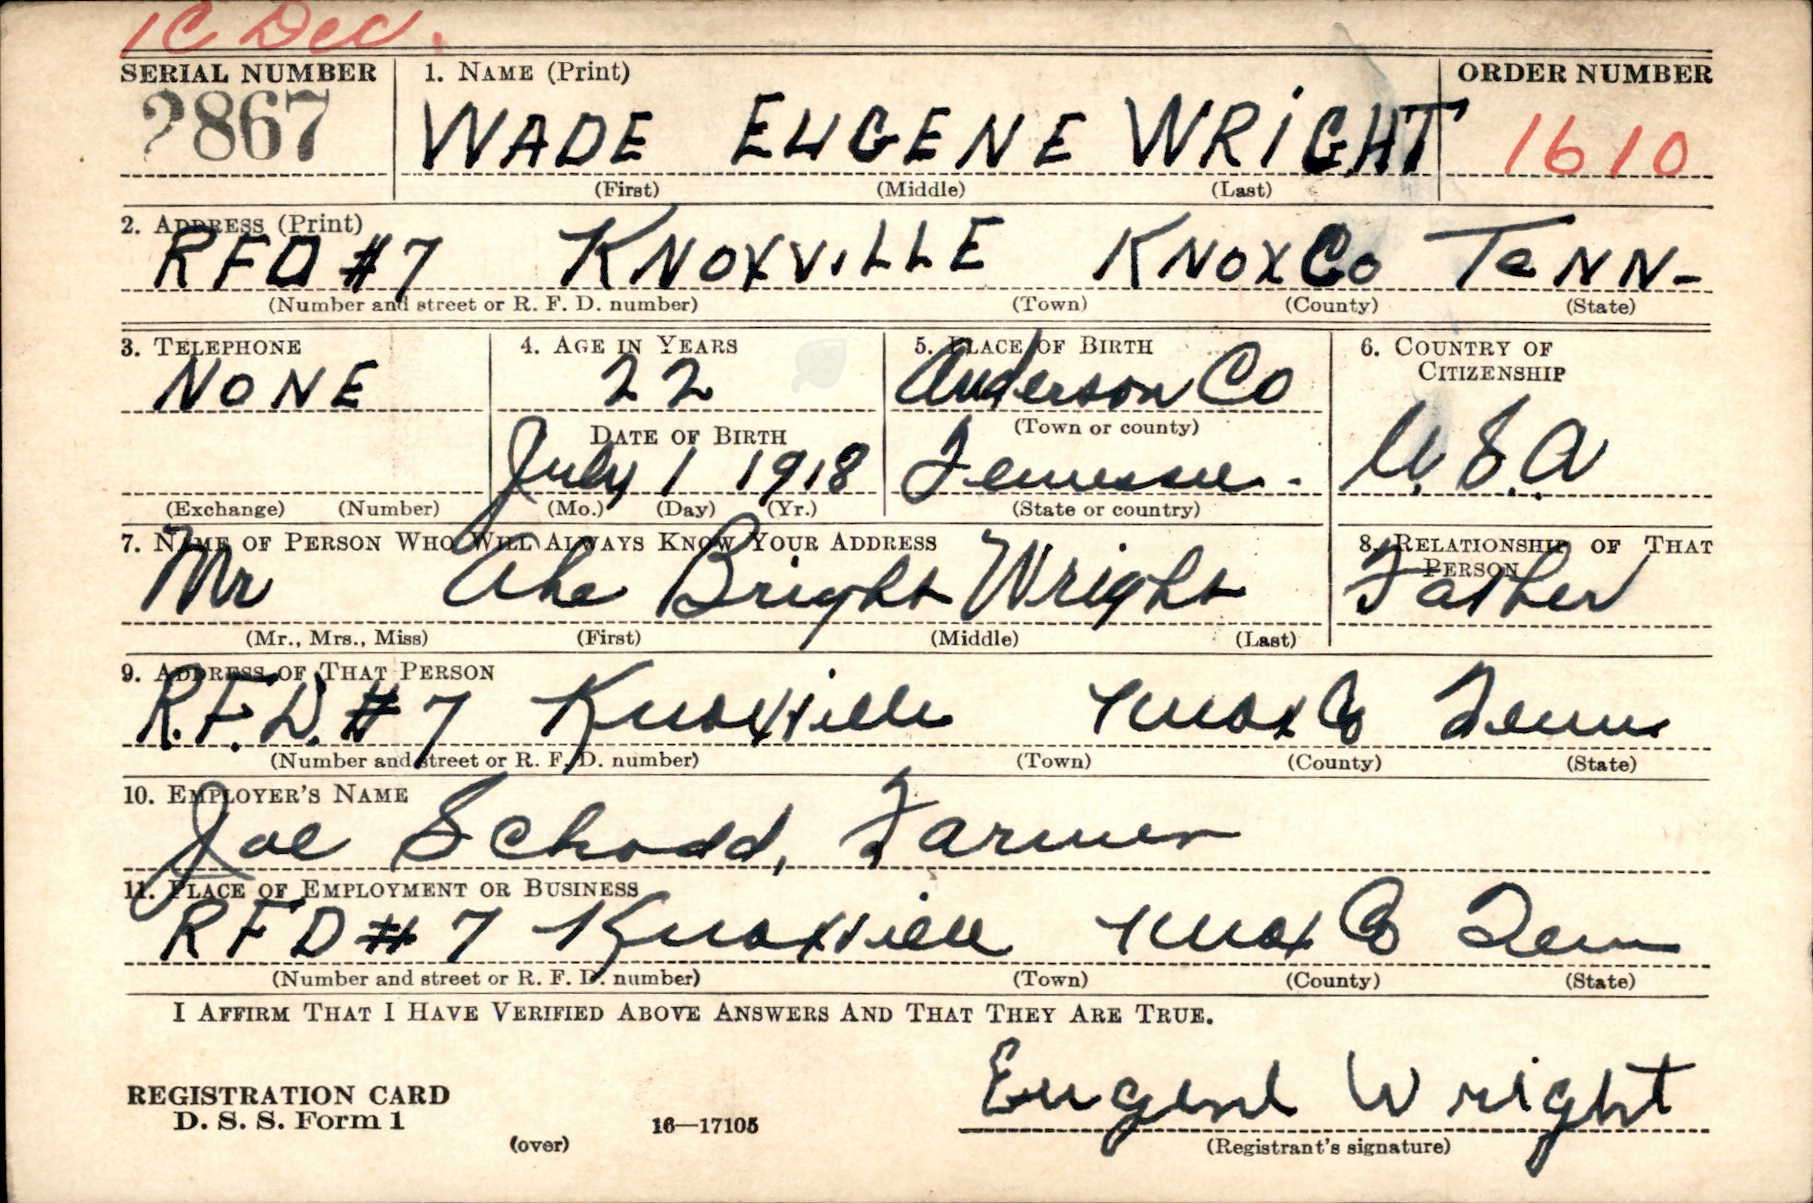 1C Dec.
SERIAL NUMBER 1. NAME (Print) ORDER NUMBER
2867 WADE EUGENE WRIGHT 1610
(First) (Middle) (Last)
2. ADDRESS (Print)
RFD #7 KNOXVILLE KNOX Co TeNN-
(Number and street or R. F. D. number) (Town) (County) (State)
3. TELEPHONE 4. AGE IN YEARS 5. PLACE OF BIRTH 6. COUNTRY OF
CITIZENSHIP
NONE 22 Anderson Co
DATE OF BIRTH (Town or county)
July 1 1918 Tennessee. U.S.A
(Exchange) (Number) (Mo.) (Day) (Yr.) (State or country)
7. NAME OF PERSON WHO WILL ALWAYS KNOW YOUR ADDRESS 8. RELATIONSHIP OF THAT
PERSON
Mr Bright Wright Father
(Mr., Mrs., Miss) (First) (Middle) (Last)
9. ADDRESS OF THAT PERSON
R.F.D. #7 Knoxville Knox Co Tenn
(Number and street or R. F. D. number) (Town) (County) (State)
10. EMPLOYER'S NAME
Joe Schodd, Farmer
11. PLACE OF EMPLOYMENT OR BUSINESS
RFD #7 Knoxville Knox Co Tenn
(Number and street or R. F. D. number) (Town) (County) (State)
I AFFIRM THAT I HAVE VERIFIED ABOVE ANSWERS AND THAT THEY ARE TRUE.
Eugene Wright
REGISTRATION CARD
D. S. S. Form 1 16—17105
(over) (Registrant's signature)